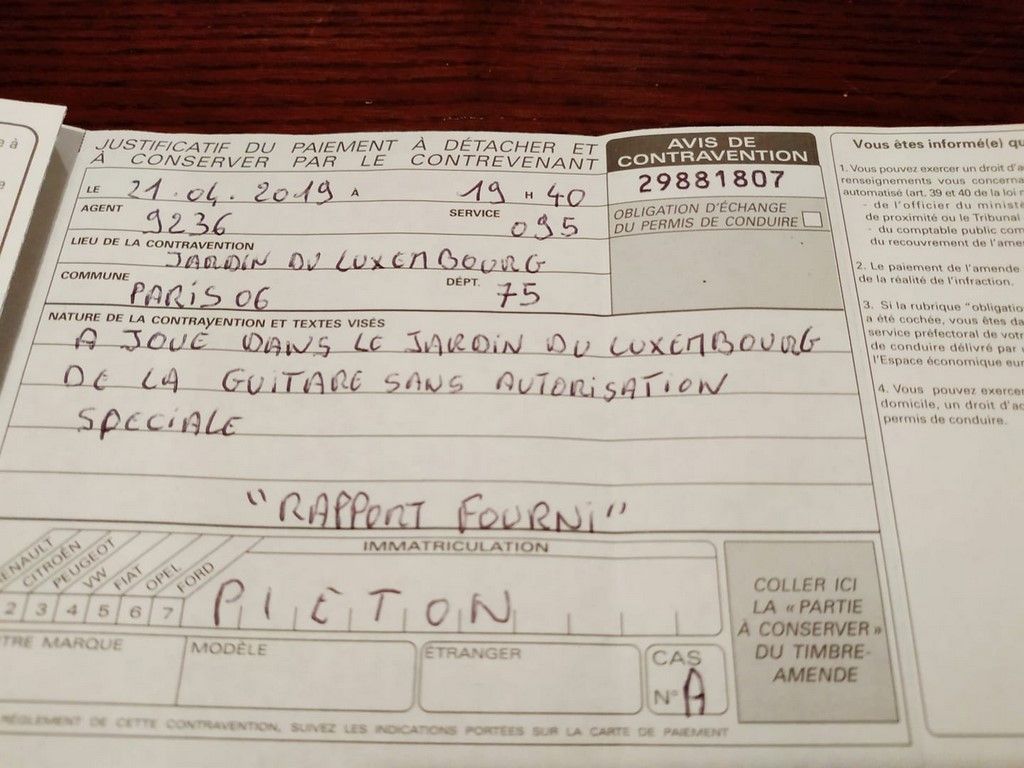 JUSTIFICATIF DU PAIEMENT À DÉTACHER ET
À CONSERVER PAR LE CONTREVENANT
LE 21.04.2019 A 19 H 40
AGENT 9236 SERVICE 095
LIEU DE LA CONTRAVENTION
JARDIN DU LUXEMBOURG
COMMUNE PARIS 06 DÉPT. 75
NATURE DE LA CONTRAVENTION ET TEXTES VISÉS
A JOUÉ DANS LE JARDIN DU LUXEMBOURG
DE LA GUITARE SANS AUTORISATION
SPECIALE
"RAPPORT FOURNI"
AVIS DE
CONTRAVENTION
29881807
OBLIGATION D'ÉCHANGE
DU PERMIS DE CONDUIRE
IMMATRICULATION
RENAULT CITROËN PEUGEOT VW FIAT OPEL FORD
2 3 4 5 6 7
PIETON
MARQUE
MODÈLE
ÉTRANGER
CAS
N° A
COLLER ICI
LA « PARTIE
À CONSERVER »
DU TIMBRE-
AMENDE
RÈGLEMENT DE CETTE CONTRAVENTION, SUIVEZ LES INDICATIONS PORTÉES SUR LA CARTE DE PAIEMENT
Vous êtes informé(e) qu
1. Vous pouvez exercer un droit d'a
renseignements vous concerna
automatisé (art. 39 et 40 de la loi
- de l'officier du ministè
de proximité ou le Tribunal
- du comptable public com
du recouvrement de l'ame
2. Le paiement de l'amende
de la réalité de l'infraction.
3. Si la rubrique "obligatio
a été cochée, vous êtes da
service préfectoral de votr
de conduire délivré par
l'Espace économique eur
4. Vous pouvez exercer
domicile, un droit d'ac
permis de conduire.